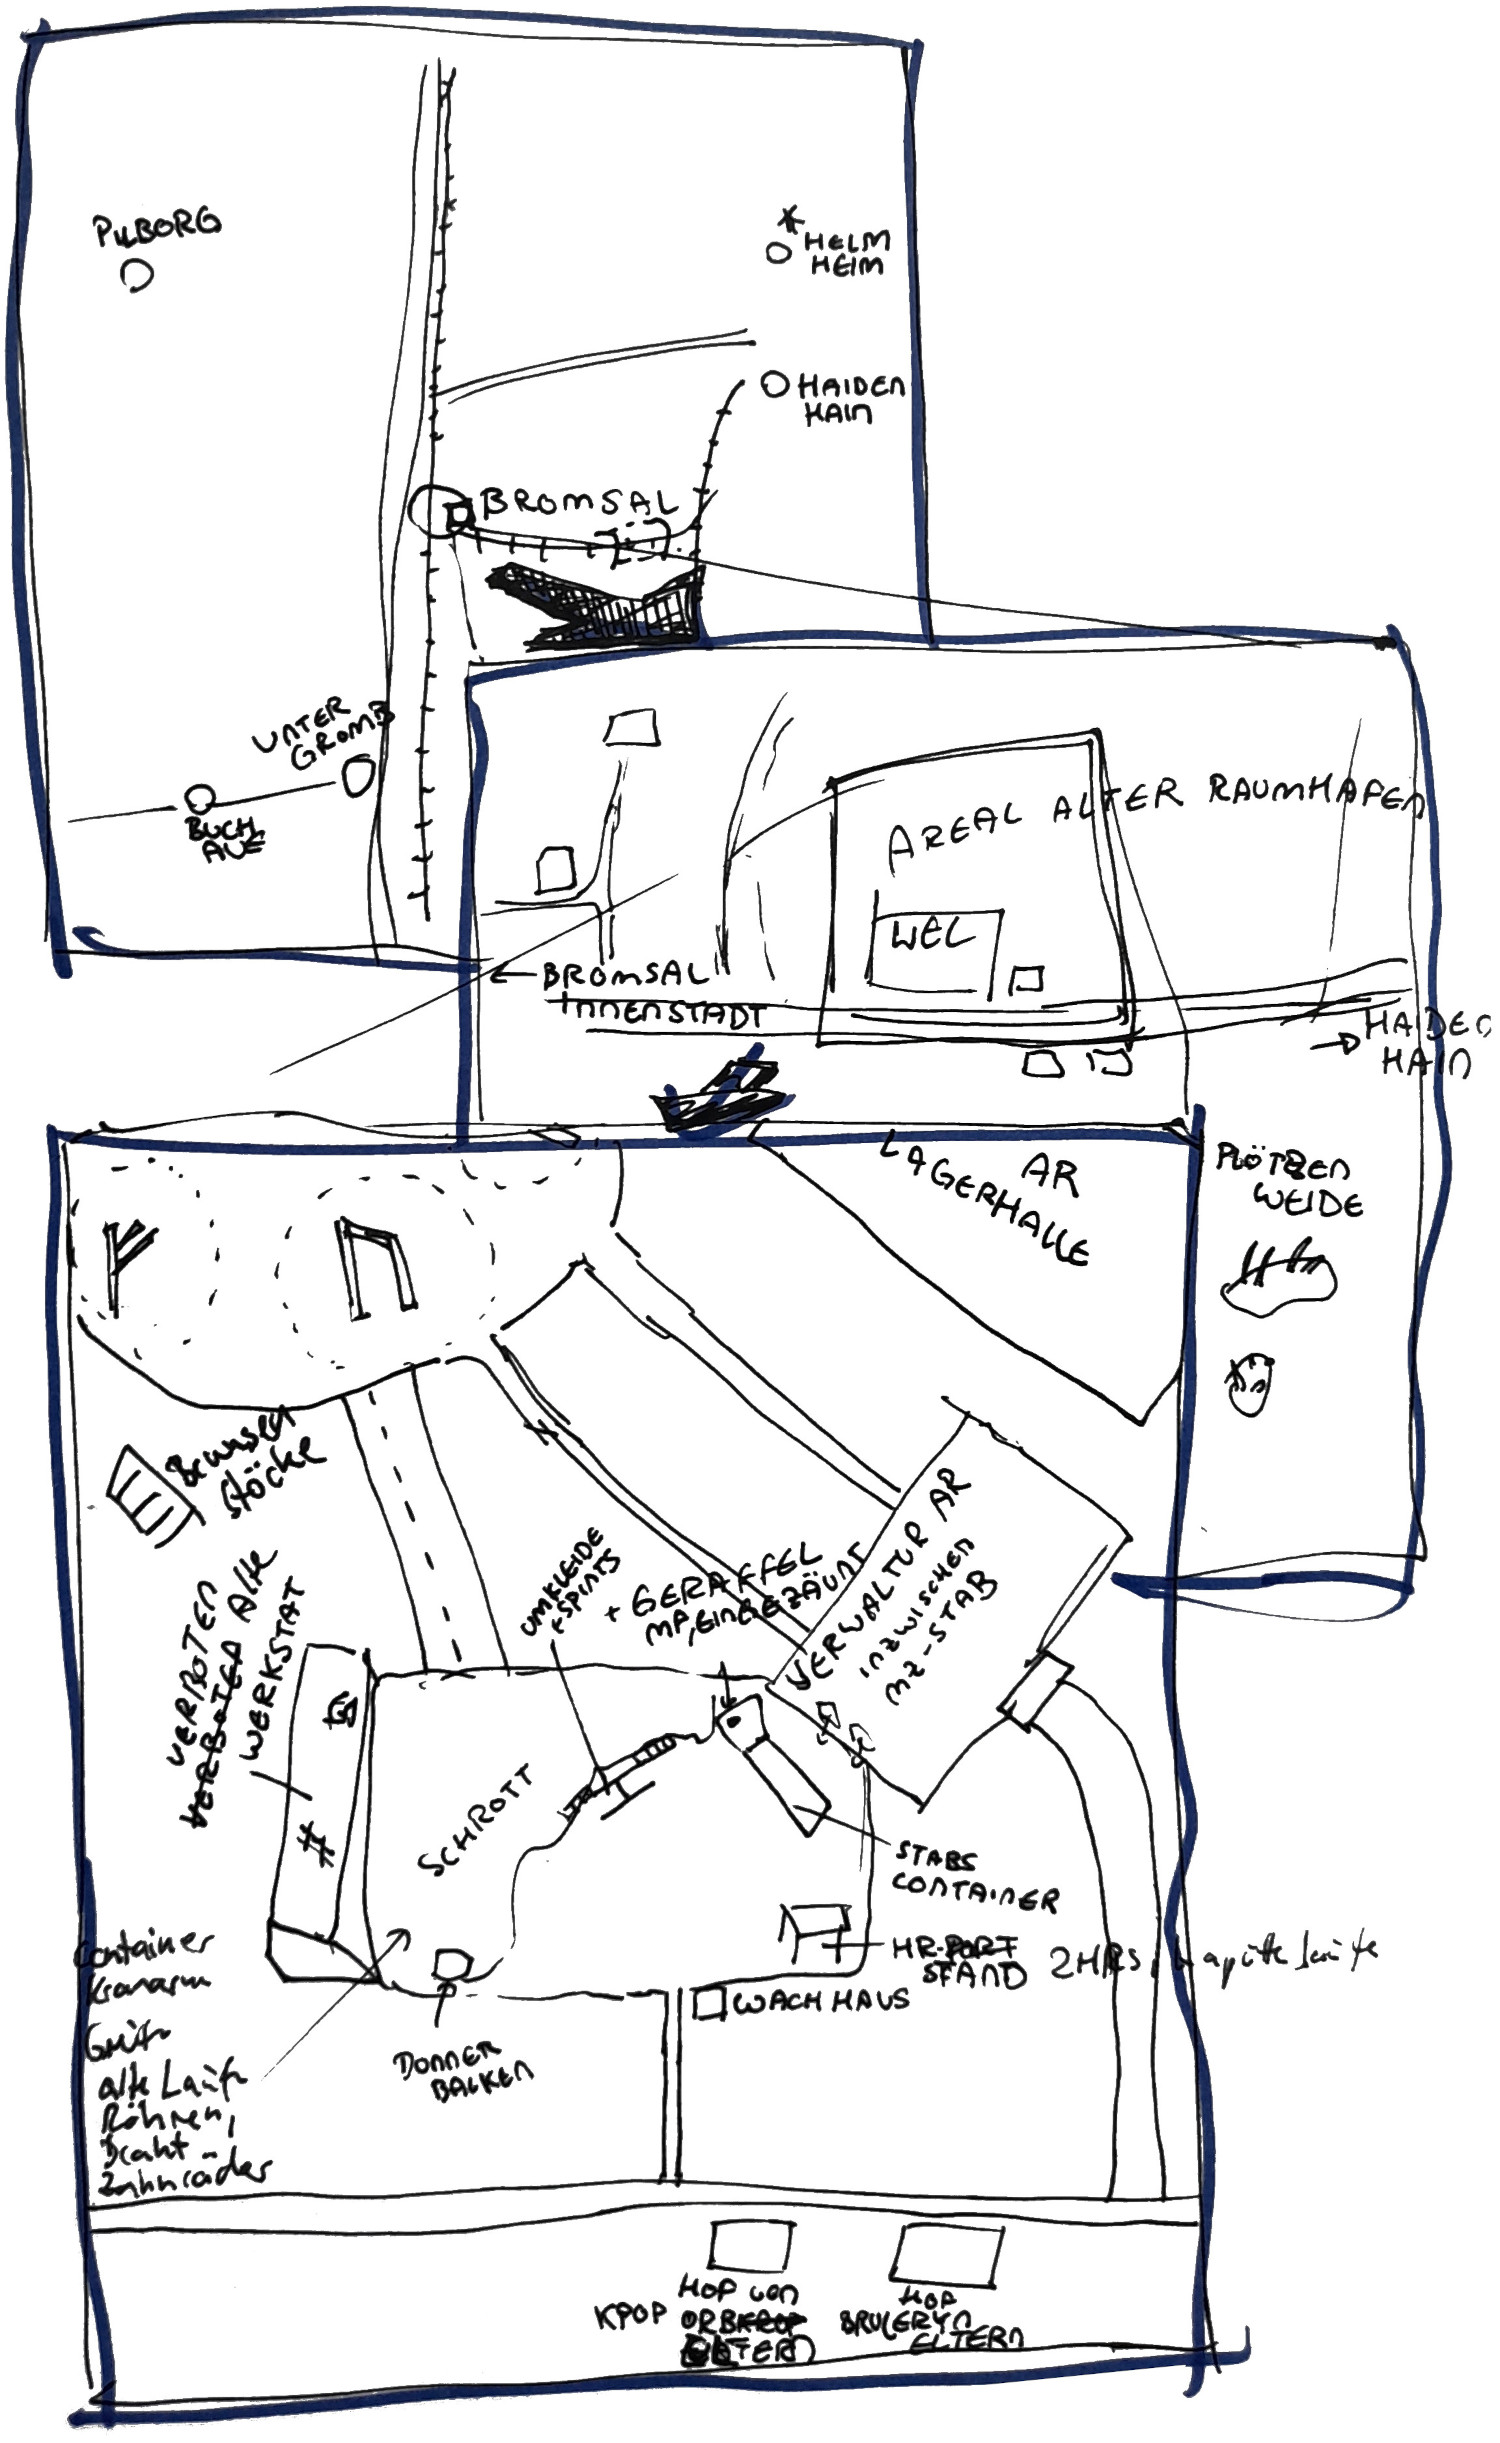 PILBORG
HELM
HEIM
HAIDEN
HAIN
BROMSAL
UNTER
GROMB
BUCH
AUE
AREAL ALTER RAUMHAFEN
WEL
← BROMSAL
INNENSTADT
→ HAIDEN
HAIN
AR
LAGERHALLE
PLÖTZEN
WEIDE
stöcke
VERBOTEN
VERBOTEN Alte
WERKSTAT
UMKLEIDE
+ SPINTS
+ GERAFFEL
MP, EINGEZÄUNT
VERWALTUR AR
INZWISCHEN
MZ-STAB
SCHROTT
STABS
CONTAINER
HR-PORT
STAND
WACHHAUS
DONNER
BALKEN
Container
Kranarm
alte Läufe
Röhren,
Draht -
Zahnräder
KPOP
HOP von
ELTERN
HOP
BRULERYN
ELTERN